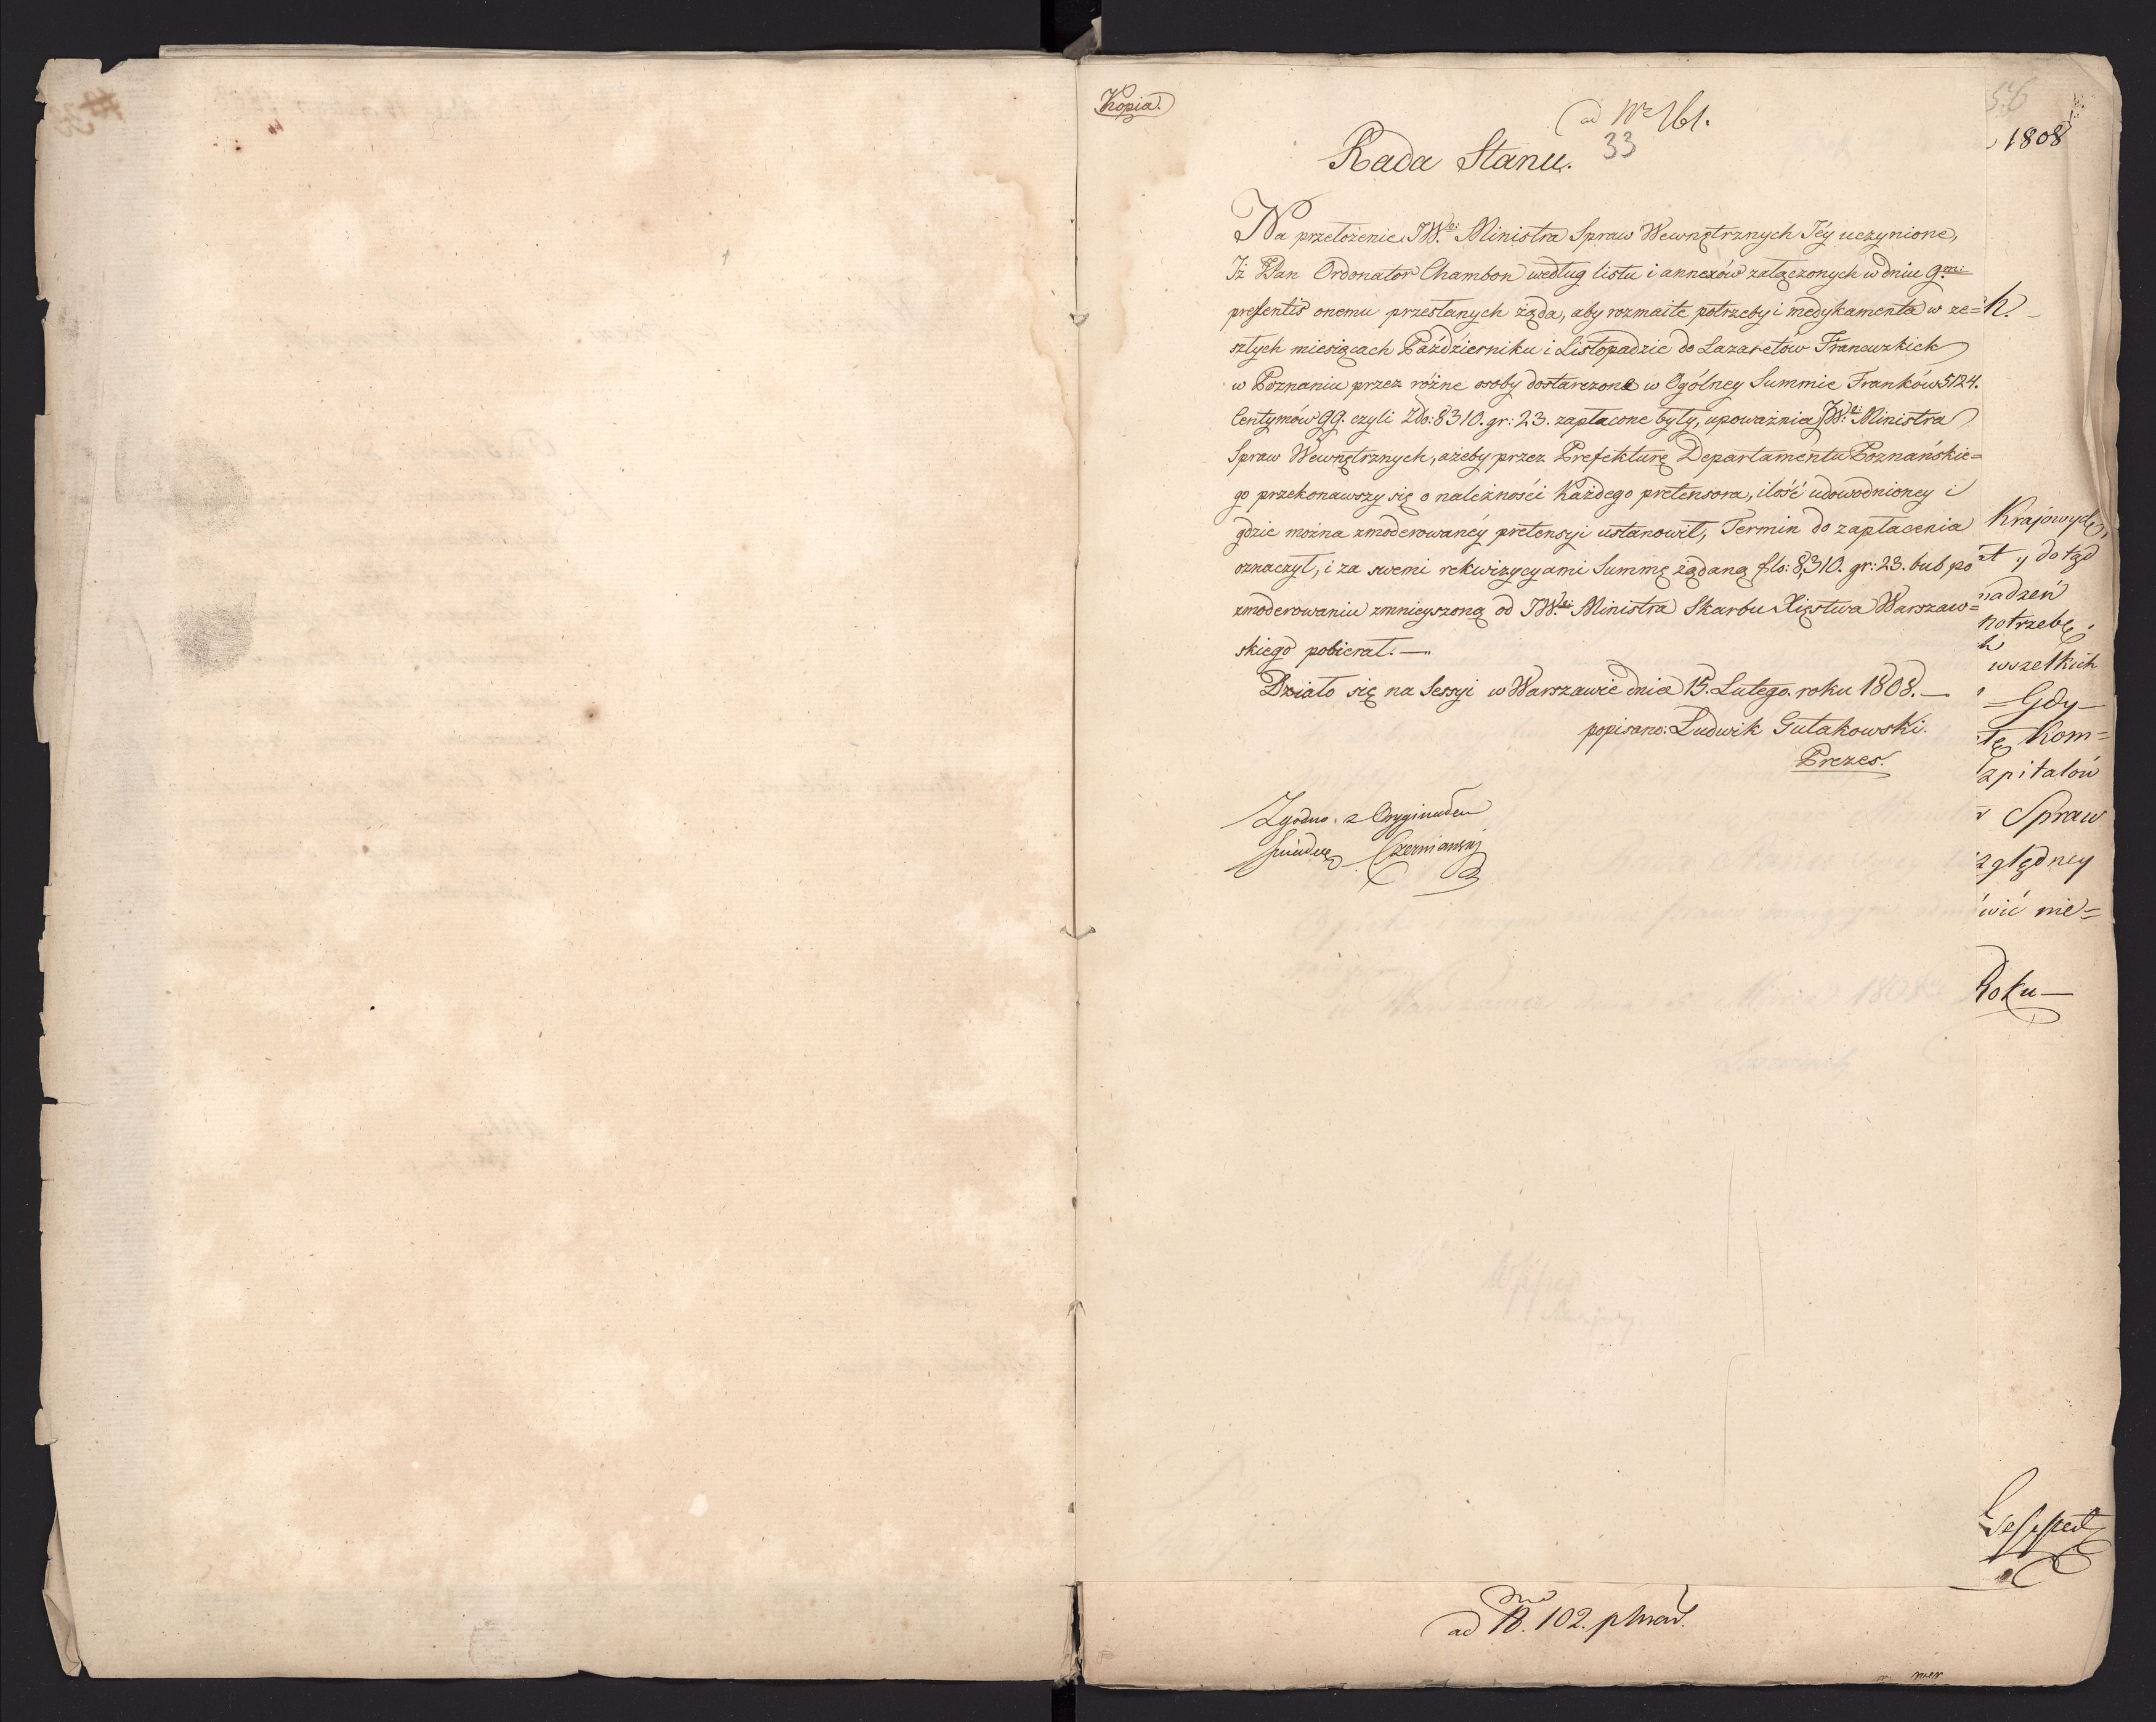 Kopia.
ad Nr 161.
33
Rada Stanu.
Na przełożenie JW.go Ministra Spraw Wewnętrznych Jéy uczynione,
Iż Pan Ordonator Chambon według listu i annexów załączonych w dniu 9.m:
presentis onemu przesłanych żąda, aby rozmaite potrzeby i medykamenta w ze=
szłych miesiącach Październiku i Listopadzie do Lazaretów Francuzkich
w Poznaniu przez różne osoby dostarczone w Ogólney Summie Franków 5124.
Centymów 99. czyli Złó: 8310. gr: 23. zapłacone były, upoważnia JW. Ministra
Spraw Wewnętrznych, ażeby przez Prefekturę Departamentu Poznańskie=
go przekonawszy się o należności Każdego pretensora, ilość udowodnioney i
gdzie można zmoderowanéy pretensyi ustanowił, Termin do zapłacenia
oznaczył, i za swemi rekwizycyami Summę żądaną flo: 8,310. gr: 23. lub po
zmoderowaniu zmnieyszoną od JW. Ministra Skarbu Xięstwa Warszaw=
skiego pobierał. —
Działo się na Sessyi w Warszawie dnia 15. Lutego. roku 1808. —
popisano: Ludwik Gutakowski.
Prezes.
Zgodno z Oryginałem
Czermiański
56
1808
h.
Krajowych,
ył y dotąd
nadzeń
potrzebę
h
wszelkich
— Gdy —
tę Kom=
zpitalów
Spraw
zględney
ówić nie=
Roku —
ad N. 102.